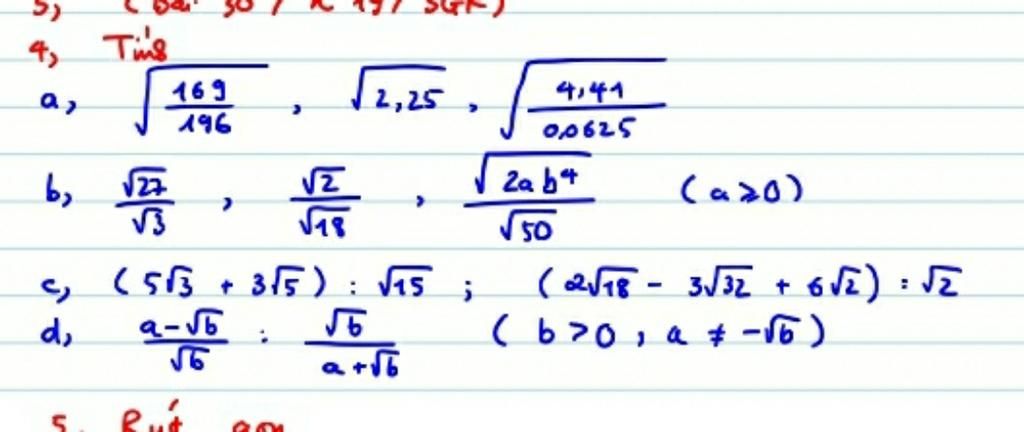 4, Tính
a, √(169/196) , √2,25 , √(4,41/0,0625)
b, √27/√3 , √2/√18 , √(2ab⁴)/√50 (a ≥ 0)
c, (5√3 + 3√5) : √15 ; (2√18 - 3√32 + 6√2) : √2
d, (a-√b)/√b : √b/(a+√b) ( b > 0 , a ≠ -√b )
5, Rút gọn